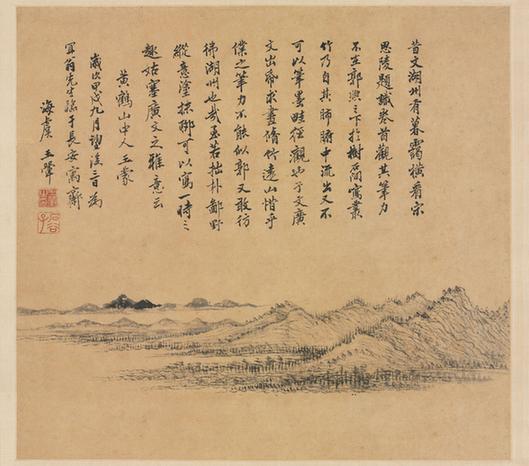 昔文湖州有暮靄橫看宋
思陵題識卷首觀其筆力
不在郭熙之下於樹石間寫叢
竹乃自其肺腑中流出又不
可以筆墨畦徑觀也子文廣
文出紙求畫脩竹遠山惜乎
僕之筆力不能似郭又敢彷
彿湖州也哉至若拙朴鄙野
縱意塗抹聊可以寫一時之
趣姑塞廣文之雅意云
黃鶴山中人王蒙
歲次甲戌九月望後三日為
翁先生臨于長安寓齋
海虞王翬
石谷子